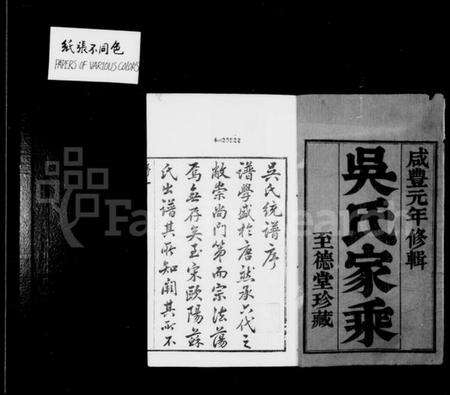 紙張不同色
PAPERS OF VARIOUS COLORS
咸豐元年修輯
吳氏家乘
至德堂珍藏
吳氏統譜序
譜學盛於唐然承六代之
敝崇尚門第而宗法蕩
焉無存矣至宋歐陽蘇
氏出譜其所知闕其所不